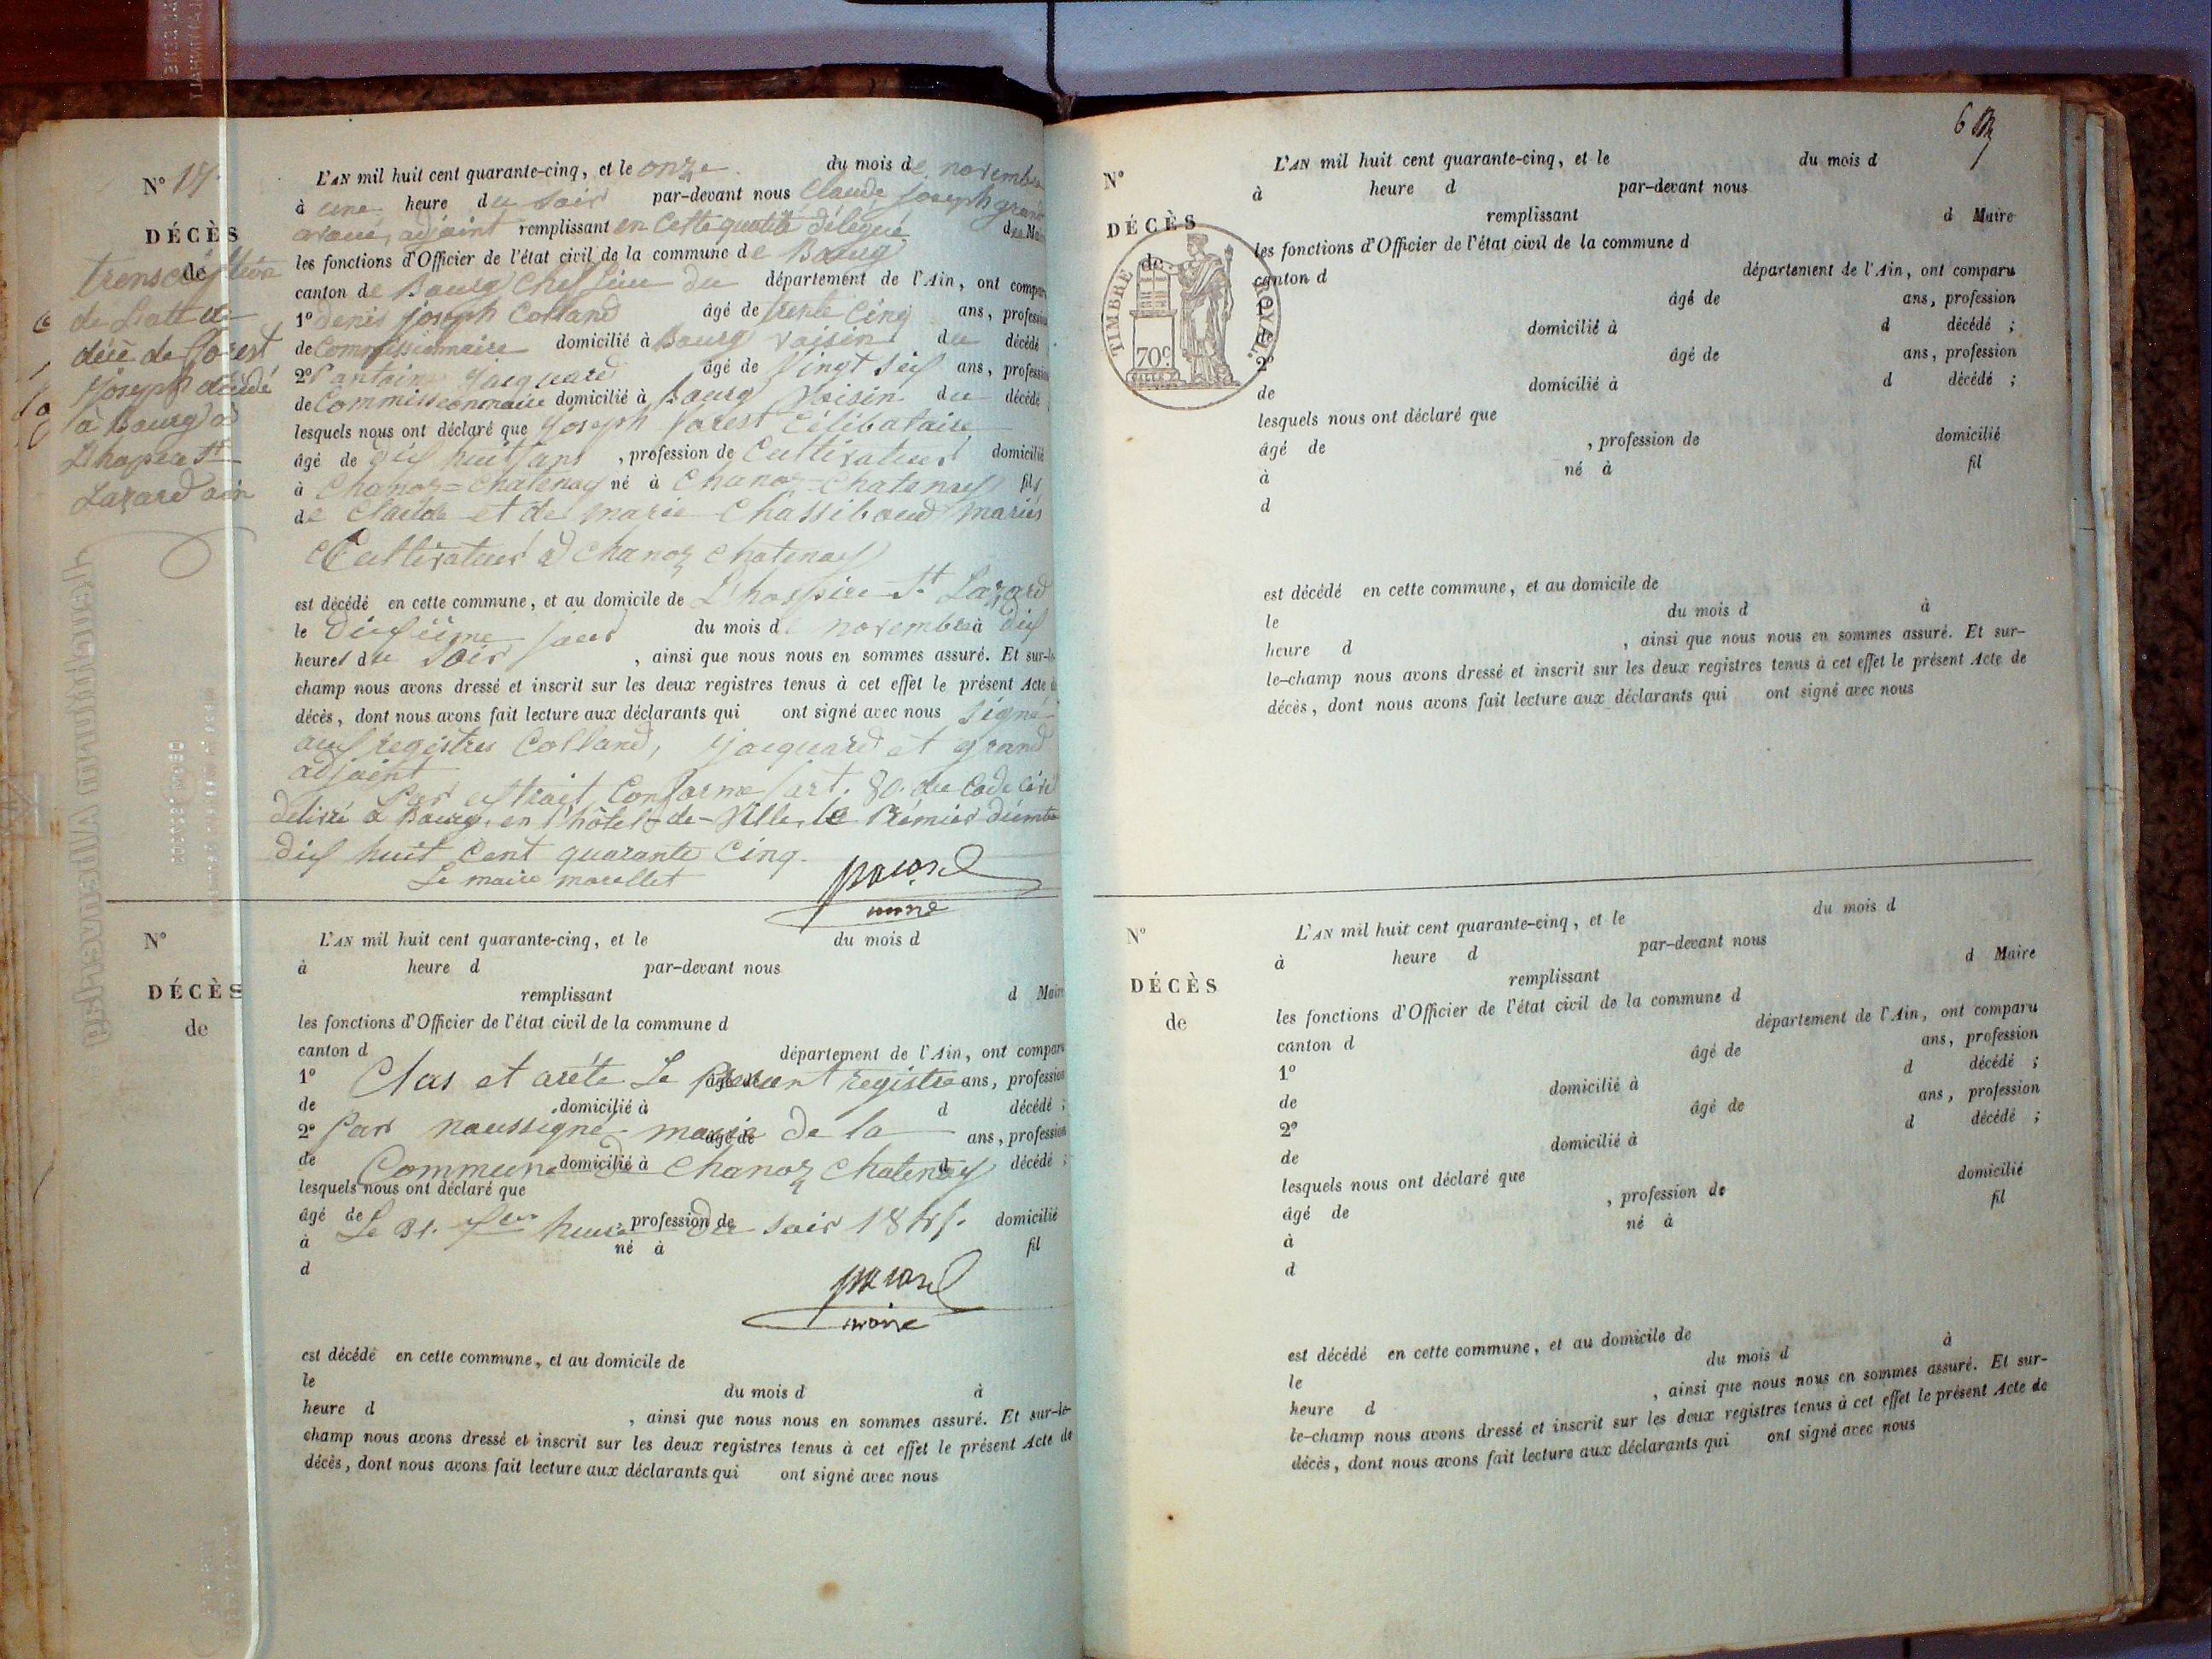 N° 17.
DÉCÈS
de
transcription
de L'att de
décè de forest
joseph décédé
à Bourg à
L'hopice St
Lazard ain
L'AN mil huit cent quarante-cinq, et le onze du mois de novembre
à une heure du soir par-devant nous Claude joseph grand
avoué, adjoint remplissant en Cette qualité délégué du Maire
les fonctions d'Officier de l'état civil de la commune de Bourg
canton de Bourg Chef lieu du département de l'Ain, ont comparu
1° Denis joseph Colland âgé de trente Cinq ans, profession
de Commissionnaire domicilié à Bourg voisin du décédé ;
2° antoine jacquard âgé de vingt sif ans, profession
de Commissionnaire domicilié à Bourg Voisin du décédé ;
lesquels nous ont déclaré que joseph forest Célibataire
âgé de dif huit ans , profession de Cultivateur domicilié
à Chanoz-Chatenay né à Chanoz-Chatenay fils
de Claude et de marie Chassiboud mariés
Cultivateur à Chanoz Chatenay
est décédé en cette commune, et au domicile de L'hospice St Lazard
le difiême jour du mois de novembre à dif
heures du soir , ainsi que nous nous en sommes assuré. Et sur-le-
champ nous avons dressé et inscrit sur les deux registres tenus à cet effet le présent Acte de
décès, dont nous avons fait lecture aux déclarants qui ont signé avec nous signé
auf registres Colland, jacquard et grand
adjoint
Par eftrait Conforme (art. 80. du Code Civil
délivré à Bourg, en l'hôtel-de-Ville, le Prémier décembre
dif huit Cent quarante Cinq.
Le maire
maire
N°
DÉCÈS
de
L'AN mil huit cent quarante-cinq, et le du mois d
à heure d par-devant nous
remplissant d Maire
les fonctions d'Officier de l'état civil de la commune d
canton d département de l'Ain, ont comparu
1° âgé de ans, profession
Clos et arété Le présent registre
de domicilié à d décédé ;
2° âgé de ans, profession
Par noussigné maire de la
de domicilié à d décédé ;
Commune de Chanoz Chatenay
lesquels nous ont déclaré que
âgé de , profession de domicilié
Le 31. heure du soir 1845.
à né à fil
d
maire
est décédé en cette commune, et au domicile de
le du mois d à
heure d , ainsi que nous nous en sommes assuré. Et sur-le-
champ nous avons dressé et inscrit sur les deux registres tenus à cet effet le présent Acte de
décès, dont nous avons fait lecture aux déclarants qui ont signé avec nous
N°
DÉCÈS
de
TIMBRE ROYAL
70c
L'AN mil huit cent quarante-cinq, et le du mois d
à heure d par-devant nous
remplissant d Maire
les fonctions d'Officier de l'état civil de la commune d
canton d département de l'Ain, ont comparu
âgé de ans, profession
domicilié à d décédé ;
2° âgé de ans, profession
de domicilié à d décédé ;
lesquels nous ont déclaré que
âgé de , profession de domicilié
à né à fil
d
est décédé en cette commune, et au domicile de
le du mois d à
heure d , ainsi que nous nous en sommes assuré. Et sur-
le-champ nous avons dressé et inscrit sur les deux registres tenus à cet effet le présent Acte de
décès, dont nous avons fait lecture aux déclarants qui ont signé avec nous
N°
DÉCÈS
de
L'AN mil huit cent quarante-cinq, et le du mois d
à heure d par-devant nous
remplissant d Maire
les fonctions d'Officier de l'état civil de la commune d
canton d département de l'Ain, ont comparu
1° âgé de ans, profession
de domicilié à d décédé ;
2° âgé de ans, profession
de domicilié à d décédé ;
lesquels nous ont déclaré que
âgé de , profession de domicilié
à né à fil
d
est décédé en cette commune, et au domicile de
le du mois d à
heure d , ainsi que nous nous en sommes assuré. Et sur-
le-champ nous avons dressé et inscrit sur les deux registres tenus à cet effet le présent Acte de
décès, dont nous avons fait lecture aux déclarants qui ont signé avec nous